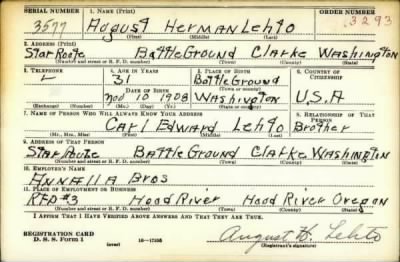 SERIAL NUMBER 1. NAME (Print) ORDER NUMBER
3577 August Herman Lehto 3293
(First) (Middle) (Last)
2. ADDRESS (Print)
Star Route BattleGround Clarke Washington
(Number and street or R. F. D. number) (Town) (County) (State)
3. TELEPHONE 4. AGE IN YEARS 5. PLACE OF BIRTH 6. COUNTRY OF CITIZENSHIP
31 BattleGround
DATE OF BIRTH (Town or county)
Nov 10 1908 Washington U.S.A
(Mo.) (Day) (Yr.) (State or country)
7. NAME OF PERSON WHO WILL ALWAYS KNOW YOUR ADDRESS 8. RELATIONSHIP OF THAT PERSON
Carl Edward Lehto Brother
(Mr., Mrs., Miss) (First) (Middle) (Last)
9. ADDRESS OF THAT PERSON
Star Route BattleGround Clarke Washington
(Number and street or R. F. D. number) (Town) (County) (State)
10. EMPLOYER'S NAME
Annalla Bros
11. PLACE OF EMPLOYMENT OR BUSINESS
RFD#3 Hood River Hood River Oregon
(Number and street or R. F. D. number) (Town) (County) (State)
I AFFIRM THAT I HAVE VERIFIED ABOVE ANSWERS AND THAT THEY ARE TRUE.
REGISTRATION CARD August H. Lehto
D. S. S. Form 1 (over) 16—17105 (Registrant's signature)